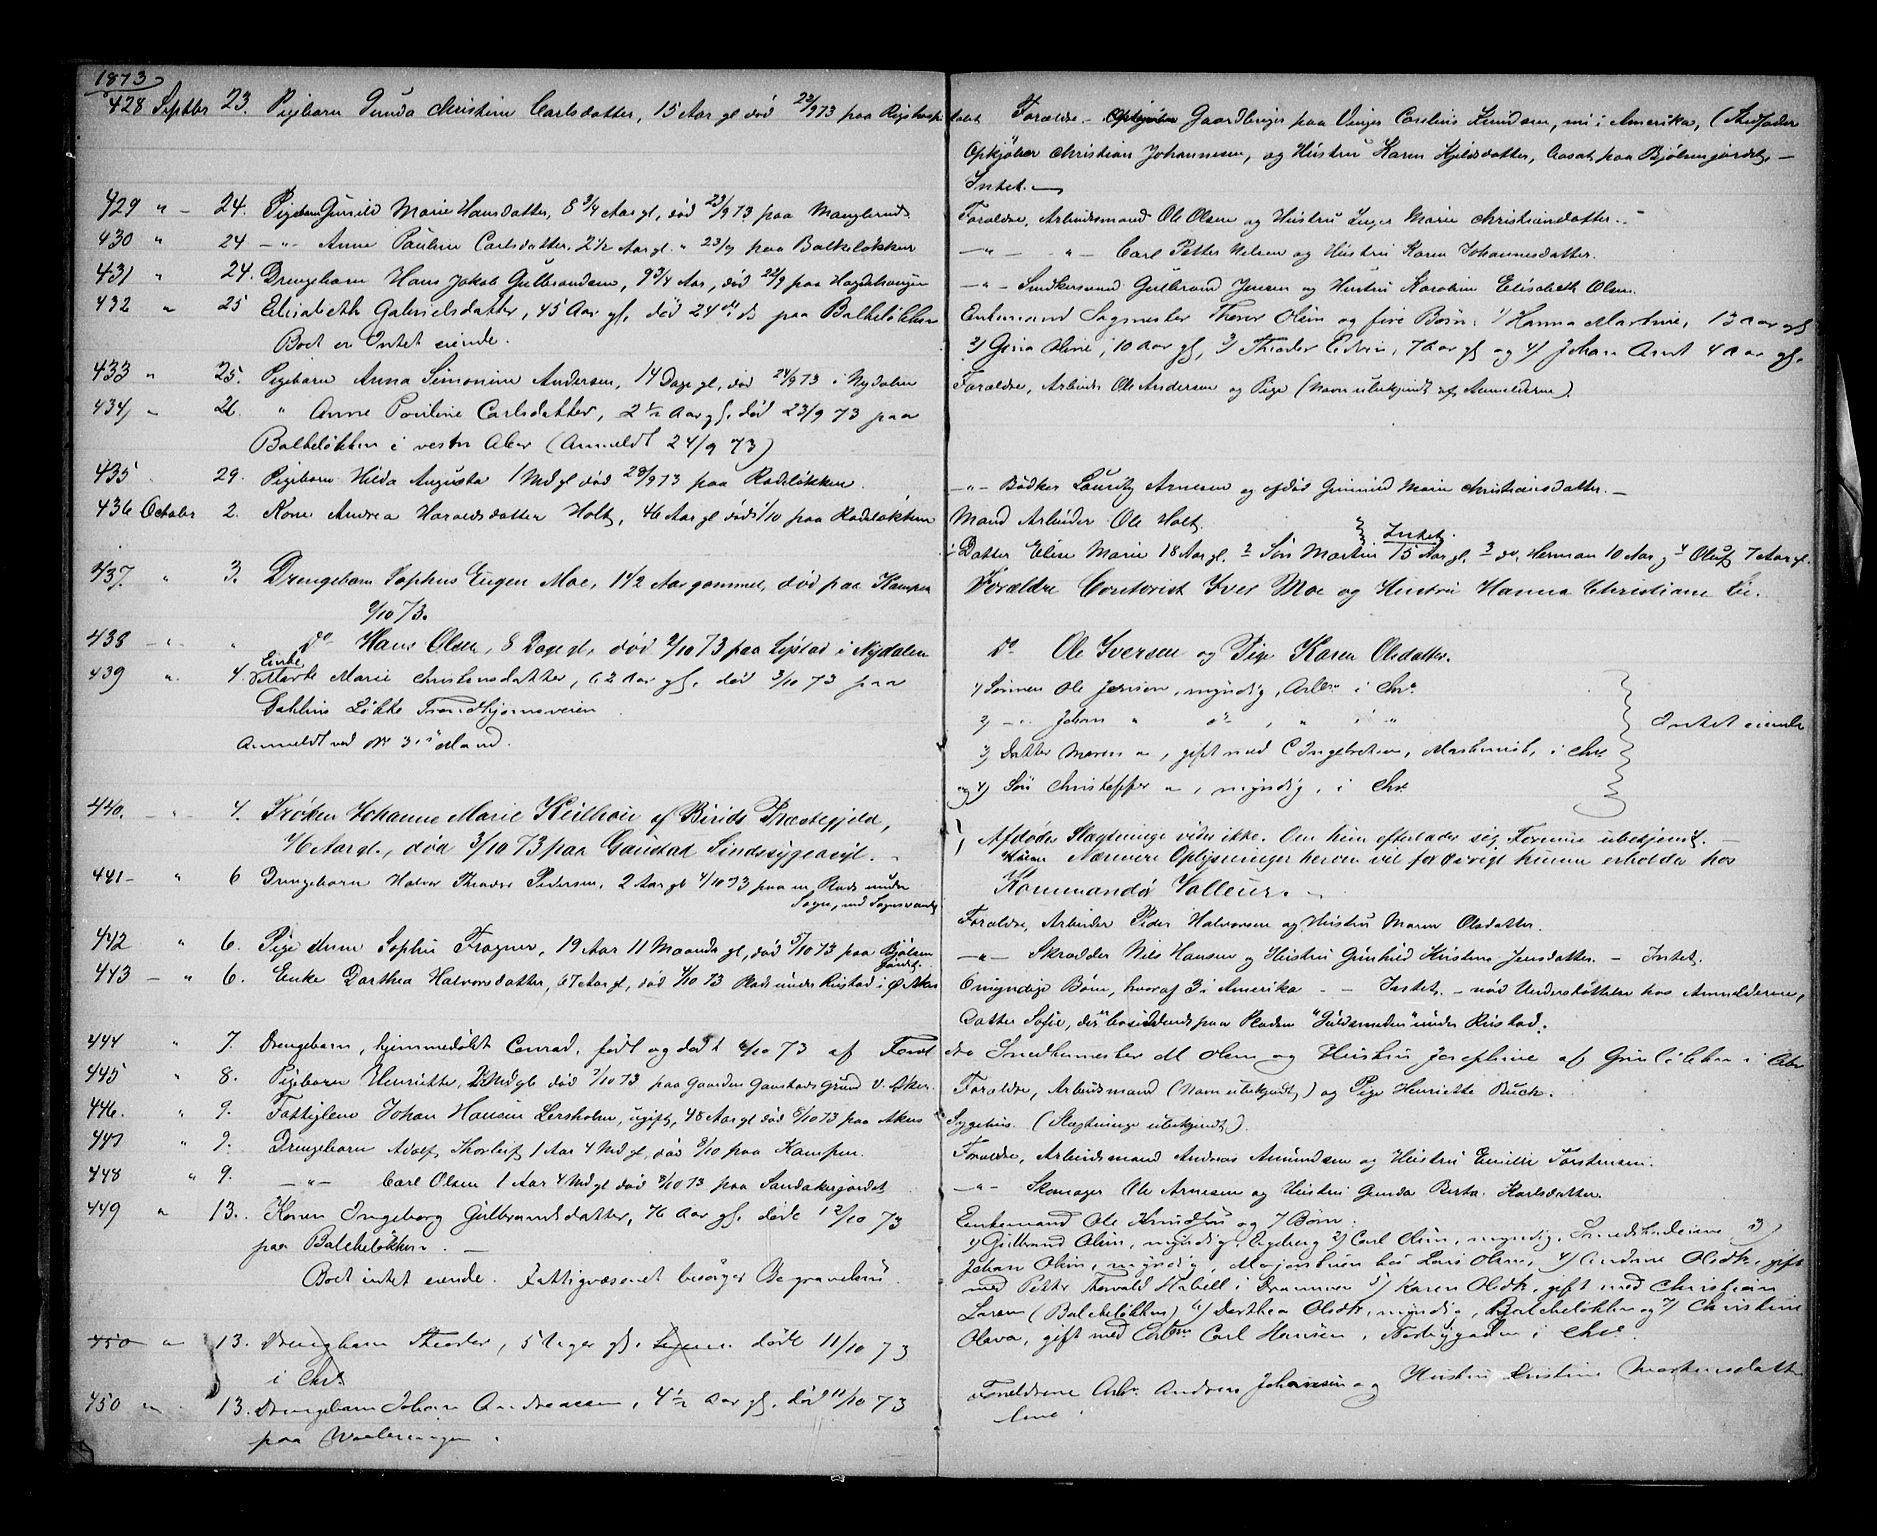 1873
428 Septbr 23. Pigebarn Gunda Christine Carlsdatter, 15 Aar gl død 23/9 73 paa Rigshospi
talet Forældre - Gaardbruger paa Carelius Knudsen, nu i Amerika, (Stedfader
Opkjøber Christian Johannesen, og Hustru Karen Kjeldsdatter, bosat paa Bjølsenjordet, -
Intet. -
429 " - 24. Pigebarn Gunild Marie Hansdatter, 8 3/4 Aar gl, død 23/9 73 paa Manglerud.
Forældre, Arbeidsmand Ole Olsen og Hustru Inger Marie Christiansdatter. -
430 " 24 - " - Anne Pauline Carlsdatter, 2 1/2 Aar gl. " 23/9 paa Balkeløkken
- " - " - Carl Petter Nilsen og Hustru Karen Johannesdatter.
431 " 24. Drengebarn Hans Jakob Gulbrandsen, 9 3/4 Aar, død 22/9 paa Hagdehaugen
- " - Snedkersvend Gulbrand Jensen og Hustru Karoline Elisabeth Olsen.
432 " 25 Elisabeth Gabrielsdatter, 45 Aar gl, død 24 ds paa Balkeløkken
Boet er Intet eiende.
Enkemand Sagmester Thorer Olsen og fire Børn: 1) Hanna Martine, 13 Aar gl
2) Gina Oline, 10 Aar gl, 3) Theodor Edvin, 7 Aar gl og 4) Johan Arnt 4 Aar gl.
433 " 25. Pigebarn Anna Simonine Andersen, 14 Dage gl, død 24/9 73 i Nydalen
Forældre, Arbeids. Ole Andersen og Pige (Navn ubekjendt af Anmelderne).
434 " 26. " Anne Pouline Carlsdatter, 2 1/2 Aar gl, død 23/9 73 paa
Balkeløkken i vestre Aker (Anmeldt 24/9 73)
435 29. Pigebarn Hilda Augusta 1 Md gl død 28/9 73 paa Rodeløkken.
- " - Bødker Lauritz Arnesen og Marie Christiansdatter. -
436 October 2. Kone Andrea Haraldsdatter Holt, 46 Aar gl død 1/10 paa Rodeløkken
Mand Arbeider Ole Holt.
Intet.
1 Datter Elise Marie 18 Aar gl. 2 Søn Martin 15 Aar gl. 3 do, Herman 10 Aar, 4 Oluf 7 Aar gl.
437. " 3. Drengebarn Sophus Eugen Moe, 1 1/2 Aar gammel, død paa Kampen
2/10 73.
Forældre Contorist Iver Moe og Hustru Hanna Christiane
438 - " " do Hans Olsen, 8 Dage gl, død 2/10 73 paa i Nydalen
do Ole Iversen og Pige Karen Olsdatter.
439 " 4. Enke Marthe Marie Christensdatter, 62 Aar gl, død 3/10 73 paa
Dahlins Løkke Trondhjemsveien
Anmeldt ved
1) Sønnen Ole Jensen, myndig, Arbr i Chra
2) - " Johan " do, " i "
3) Datter Maren " , gift med C Ingebretsen, Maskinist, i Chra
og 4) Søn Christoffer " , myndig, i Chra
Intet eiende
440. - " - 4. Frøken Johanne Marie Keilhau af Birids Præstegjeld,
76 Aar gl., død 3/10 73 paa Gaustad Sindssygeasyl. -
Afdødes Slægtninge vides ikke. Om hun efterlader sig Formue ubekjent. -
Nærmere Oplysninger herom vil forøvrigt kunne erholdes hos
Kommandør Valleur. -
441 - " 6 Drengebarn Halvor Theodor Pedersen, 2 Aar gl 4/10 73 paa en Plads under
Sogn, ved Sognsvandet
Forældre, Arbeider Peder Halvorsen og Hustru Maren Olsdatter.
442 " 6. Pige Anne Sophie Fragner, 19 Aar 11 Maaneder gl, død 5/10 73 paa Bjølsen
jordet.
- " - Skrædder Nils Hansen og Hustru Gunhild Kirstine Jensdatter. - Intet.
443 - " 6. Enke Dorthea Halvorsdatter, 67 Aar gl, død 4/10 73 Plads under Rustad i Ø Aker
6 myndige Børn, hvoraf 3 i Amerika. - Intet. - nød Understøttelse hos Anmelderne,
Datter Sofie, der er bosiddende paa Pladsen "Guldsmeden" under Rustad.
444 " 7. Drengebarn, hjemmedøbt Conrad, født og død 6/10 73 af Foræl
dre Snedkermester M Olsen og Hustru Josephine af Grünløkken i Aker
445 " 8. Pigebarn Henriette, Md gl død 7/10 73 paa Gaarden Gaustads Grund V. Aker.
Forældre, Arbeidsmand (Navn ubekjendt,) og Pige Henriette Buch.
446. " 9. Fattiglem Johan Hansen Lersholm, ugift, 48 Aar gl død 5/10 73 paa Akers
Sygehus. (Slægtninge ubekjendt).
447 " 9. Drengebarn Adolf Thorleif 1 Aar 4 Md gl, død 8/10 paa Kampen.
Forældre, Arbeidsmand Andreas Amundsen og Hustru Emilie Torstensen.
448 " 9. - " - Carl Olsen 1 Aar 4 Md gl død 8/10 73 paa Sandakerjordet
- " - Skomager Ole Arnesen og Hustru Gunda Berta Karlsdatter.
449 " 13. Karen Ingeborg Gulbrandsdatter, 76 Aar gl, døde 12/10 73
paa Balckeløkken. -
Boet intet eiende. Fattigvæsenet besørger Begravelsen.
Enkemand Ole Knudsen og 7 Børn:
1) Gulbrand Olsen, myndig, Egeberg 2) Carl Olsen, myndig, 3)
Johan Olsen, myndig, hos Lars Olsen, 4) Andrine Olsdtr, gift
med Petter Thorvald i Drammen 5) Karen Olsdtr, gift med Christian
Larsen (Balckeløkken) 6) Dorthea Olsdtr, myndig, Balckeløkken og 7) Christine
Olava, gift med Carl Hansen, i Chra.
450 " 13. Drengebarn Theodor, 5 Dage gl, døde 11/10 73
i Chra.
450 " 13. Drengebarn Johan Andreassen, 4 1/2 Aar gl, død 11/10 73
paa Vaalerengen.
Forældrene Arbr. Andreas Johansen og Hustru Kristine Mortensdatter